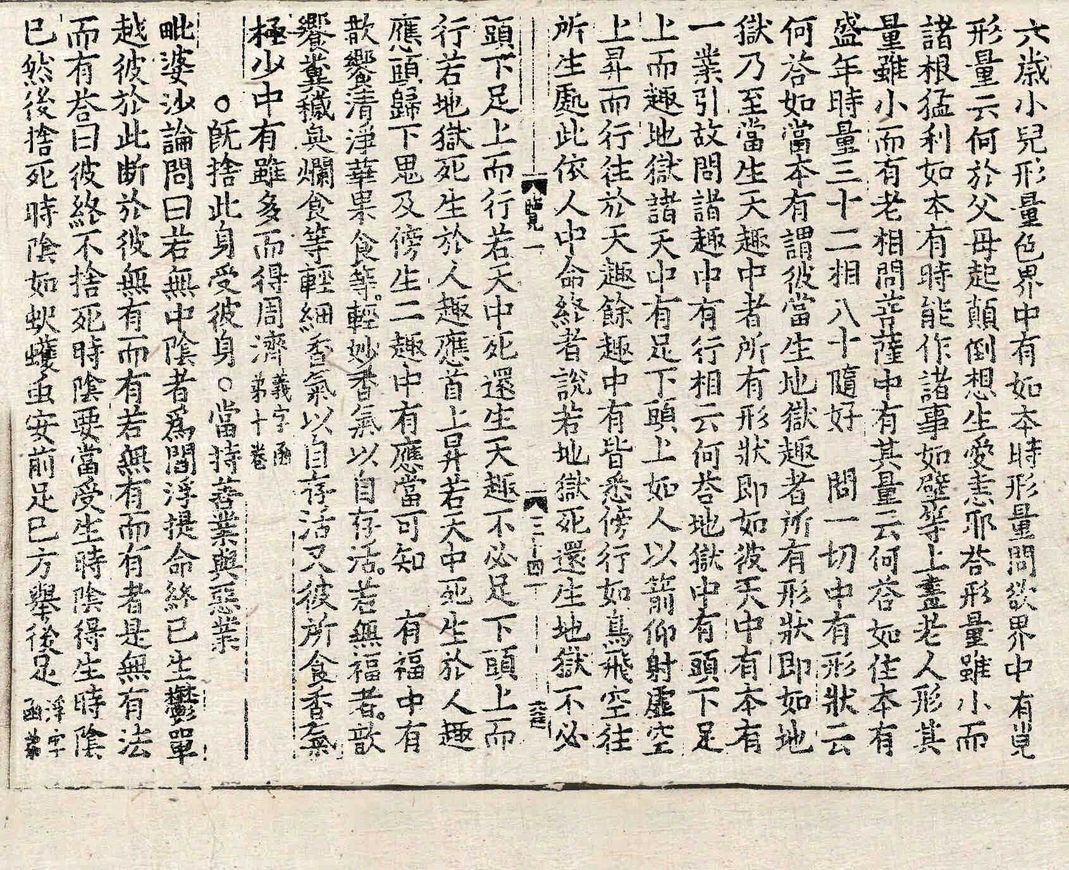 六歲小兒形量色界中有如本時形量問欲界中有皃
形量云何於父母起顛倒想生愛恚耶荅形量雖小而
諸根猛利如本有時能作諸事如壁等上畫老人形其
量雖小而有老相問菩薩中有其量云何荅如住本有
盛年時量三十二相八十隨好　問一切中有形狀云
何荅如當本有謂彼當生地獄趣者所有形狀即如地
獄乃至當生天趣中者所有形狀即如彼天中有本有
一業引故問諸趣中有行相云何荅地獄中有頭下足
上而趣地獄諸天中有足下頭上如人以箭仰射虛空
上昇而行往於天趣餘趣中有皆悉傍行如鳥飛空往
所生處此依人中命終者說若地獄死還生地獄不必
覽一　三十四
頭下足上而行若天中死還生天趣不必足下頭上而
行若地獄死生於人趣應首上昇若天中死生於人趣
應頭歸下思及傍生二趣中有應當可知　有福中有
歆饗清淨華果食等輕妙香氣以自存活若無福者歆
饗糞穢臭爛食等輕細香氣以自存活又彼所食香氣
極少中有雖多而得周濟 義字函第十卷
○旣捨此身受彼身○當持善業與惡業
毗婆沙論問曰若無中陰者爲閻浮提命終已生欝單
越彼於此斷於彼無有而有若無有而有者是無有法
而有荅曰彼終不捨死時陰要當受生時陰得生時陰
已然後捨死時陰如蚇蠖虫安前足已方舉後足 浮字函第